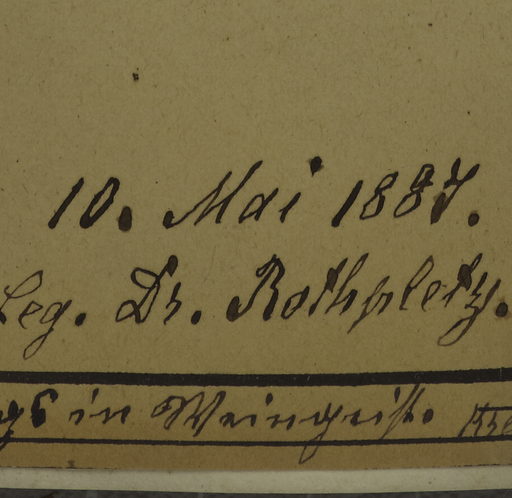 10. Mai 1887.
Leg. Dr. Rothpletz.
in Weingeist.